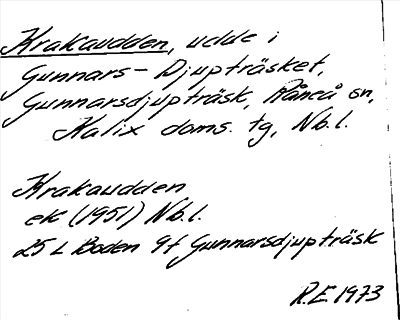 Krakaudden, udde i
Gunnars-Djupträsket,
Gunnarsdjupträsk, Råneå sn,
Kalix doms. tg, Nb.l.
Krakaudden
ek (1951) Nb.l.
25 L Boden 9f Gunnarsdjupträsk
R.E. 1973